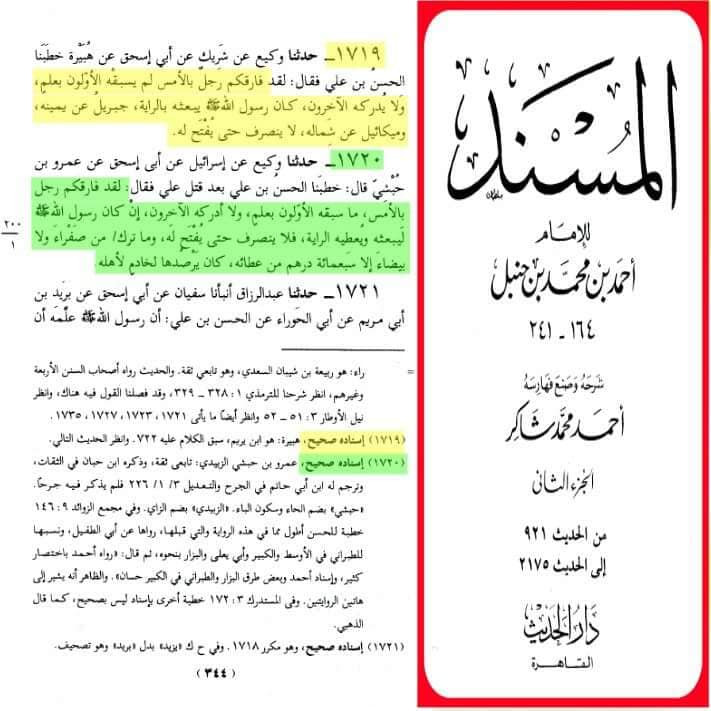 ١٧١٩ـ حدثنا وكيع عن شريك عن أبي إسحق عن هُبَيْرة خطَبَنَا
الحسنُ بن علي فقال: لقد فارقكم رجلٌ بالأمس لم يسبقْه الأوّلون بعلمٍ،
ولا يُدركه الآخرون، كان رسول الله ﷺ يبعثه بالراية، جبريلُ عن يمينه،
وميكائيل عن شماله، لا ينصرف حتى يُفْتَح له.
١٧٢٠ـ حدثنا وكيع عن إسرائيل عن أبى إسحق عن عمرو بن
حُبْشيّ قال: خطبَنا الحسنُ بن علي بعد قتل علي فقال: لقد فارقكم رجل
بالأمس، ما سبقه الأوّلون بعلمٍ، ولا أدركه الآخرون، إن كان رسول الله ﷺ
لَيبعثه ويُعطيه الراية، فلا ينصرف حتى يُفْتح له، وما ترك/ من صَفْراءَ ولا
بيضاءَ إلا سبعمائة درهم من عطائه، كان يَرْصُدها لخادمٍ لأهله.
٢٠٠
١
١٧٢١ـ حدثنا عبدالرزاق أنبأنا سفيان عن أبي إسحق عن بريد بن
أبي مريم عن أبي الحَوراء عن الحسن بن علي: أن رسول الله ﷺ علّمه أن
= راء: هو ربيعة بن شيبان السعدي، وهو تابعي ثقة. والحديث رواه أصحاب السنن الأربعة
وغيرهم، انظر شرحنا للترمذي ١: ٣٢٨ ـ ٣٢٩. وقد فصلنا القول فيه هناك، وفى
نيل الأوطار ٣: ٥١ ـ ٥٢ وانظر أيضاً ما يأتى ١٧٢١، ١٧٢٣، ١٧٢٧، ١٧٣٥.
(١٧١٩) إسناده صحيح، هبيرة: هو ابن يريم، سبق الكلام عليه ٧٢٢. وانظر الحديث التالي.
(١٧٢٠) إسناده صحيح، عمرو بن حبشي الزبيدي: تابعي ثقة، وذكره ابن حبان في الثقات،
وترجم له ابن أبي حاتم في الجرح والتعديل ٣ /١ /٢٢٦ فلم يذكر فيه جرحاً.
«حبشي» بضم الحاء وسكون الباء. «الزبيدي» بضم الزاي. وفي مجمع الزوائد ٩: ١٤٦
خطبة للحسن أطول مما في هذه الرواية والتي قبلها، رواها عن أبي الطفيل، ونسبها
للطبراني في الأوسط والكبير وأبي يعلى والبزار بنحوه، ثم قال: «رواه أحمد باختصار
كثير، وإسناد أحمد وبعض طرق البزار والطبراني في الكبير حسان». والظاهر أنه يشير إلى
هاتين الروايتين. وفى المستدرك ٣: ١٧٢ خطبة أخرى بإسناد ليس بصحيح، كما قال
الذهبي.
(١٧٢١) إسناده صحيح، وهو مكرر ١٧١٨. وفي ح ك «يزيد» بدل «بريد» وهو تصحيف.
(٣٤٤)
المسند
للإمام
أحمد بن محمد بن حنبل
١٦٤ ـ ٢٤١
شرحه وصنع فهارسه
أحمد محمد شاكر
الجزء الثاني
من الحديث ٩٢١
إلى الحديث ٢١٧٥
دار الحديث
القاهرة